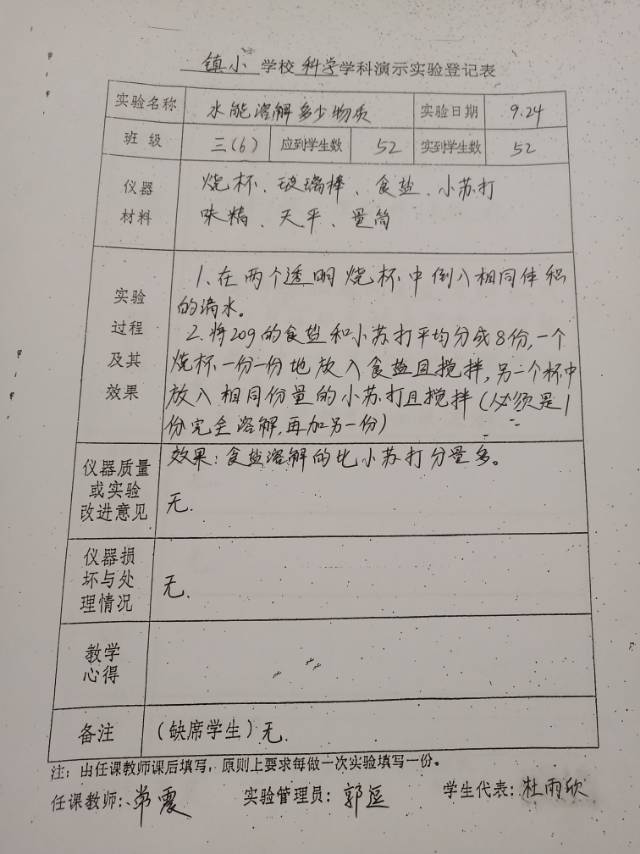 镇小学校科学学科演示实验登记表
实验名称 水能溶解多少物质 实验日期 9.24
班级 三(6) 应到学生数 52 实到学生数 52
仪器 烧杯、玻璃棒、食盐、小苏打
材料 味精、天平、量筒
1、在两个透明烧杯中倒入相同体积
实验 的滴水。
过程 2.将20g的食盐和小苏打平均分成8份,一个
及其 烧杯一份一份地放入食盐且搅拌,另一个杯中
效果 放入相同份量的小苏打且搅拌(必须是1
份完全溶解,再加另一份)
效果:食盐溶解的比小苏打分量多。
仪器质量
或实验
改进意见 无.
仪器损
坏与处
理情况 无.
教学
心得
备注 (缺席学生)无.
注:由任课教师课后填写,原则上要求每做一次实验填写一份。
任课教师:常霞 实验管理员:郭 学生代表:杜雨欣